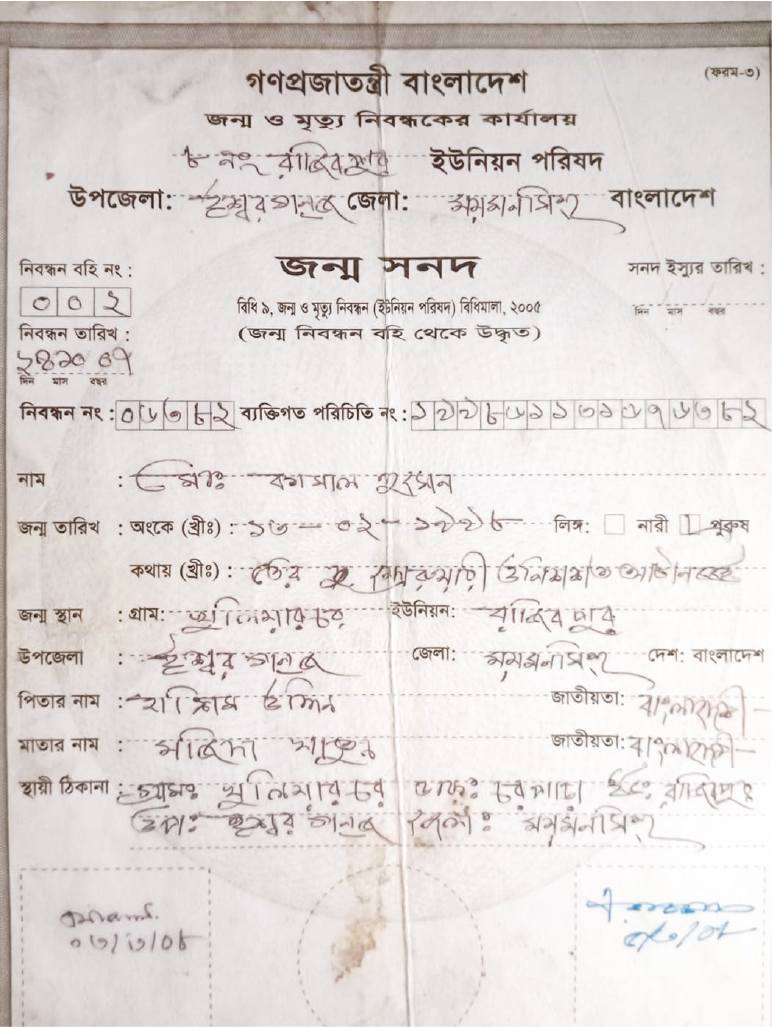 (ফরম-৩)
গণপ্রজাতন্ত্রী বাংলাদেশ
জন্ম ও মৃত্যু নিবন্ধকের কার্যালয়
৮ নং রাজিবপুর ইউনিয়ন পরিষদ
উপজেলা: ঈশ্বরগঞ্জ জেলা: ময়মনসিংহ বাংলাদেশ
নিবন্ধন বহি নং :
জন্ম সনদ
সনদ ইস্যুর তারিখ :
০০২
বিধি ৯, জন্ম ও মৃত্যু নিবন্ধন (ইউনিয়ন পরিষদ) বিধিমালা, ২০০৫
দিন মাস বছর
নিবন্ধন তারিখ :
(জন্ম নিবন্ধন বহি থেকে উদ্ধৃত)
দিন মাস বছর
নিবন্ধন নং : ০৬৩৮২ ব্যক্তিগত পরিচিতি নং : ১৯৯৮৬১১৩১৬৭৬৩৮২
নাম : মোঃ কামাল হুসেন
জন্ম তারিখ : অংকে (খ্রীঃ) : ১৩-০২-১৯৯৮ লিঙ্গ: নারী পুরুষ
কথায় (খ্রীঃ) : তের ফেব্রুয়ারী উনিশশত আটানব্বই
জন্ম স্থান : গ্রাম: খুলিয়ারচর ইউনিয়ন: রাজিবপুর
উপজেলা : ঈশ্বরগঞ্জ জেলা: ময়মনসিংহ দেশ: বাংলাদেশ
পিতার নাম : উদ্দিন জাতীয়তা: বাংলাদেশী
মাতার নাম : মজিদা খাতুন জাতীয়তা: বাংলাদেশী
স্থায়ী ঠিকানা : গ্রামঃ খুলিয়ারচর ডাকঃ ইউঃ রাজিবপুর
উপঃ ঈশ্বরগঞ্জ জেলাঃ ময়মনসিংহ